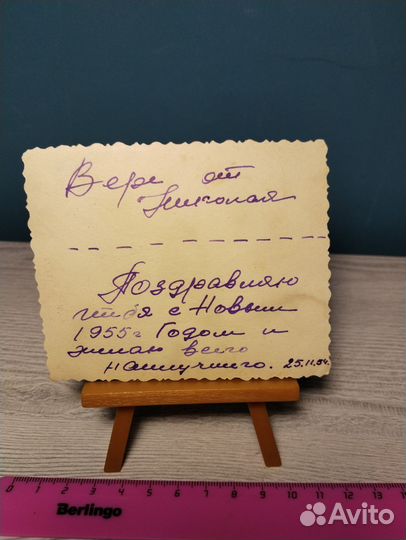 Вере от
Николая
Поздравляю
тебя с Новым
1955 г Годом и
желаю всего
наилучшего. 25.12.54.
0 1 2 3 4 5 6 7 8 9 10 11 12 13 14 15
Berlingo
Avito